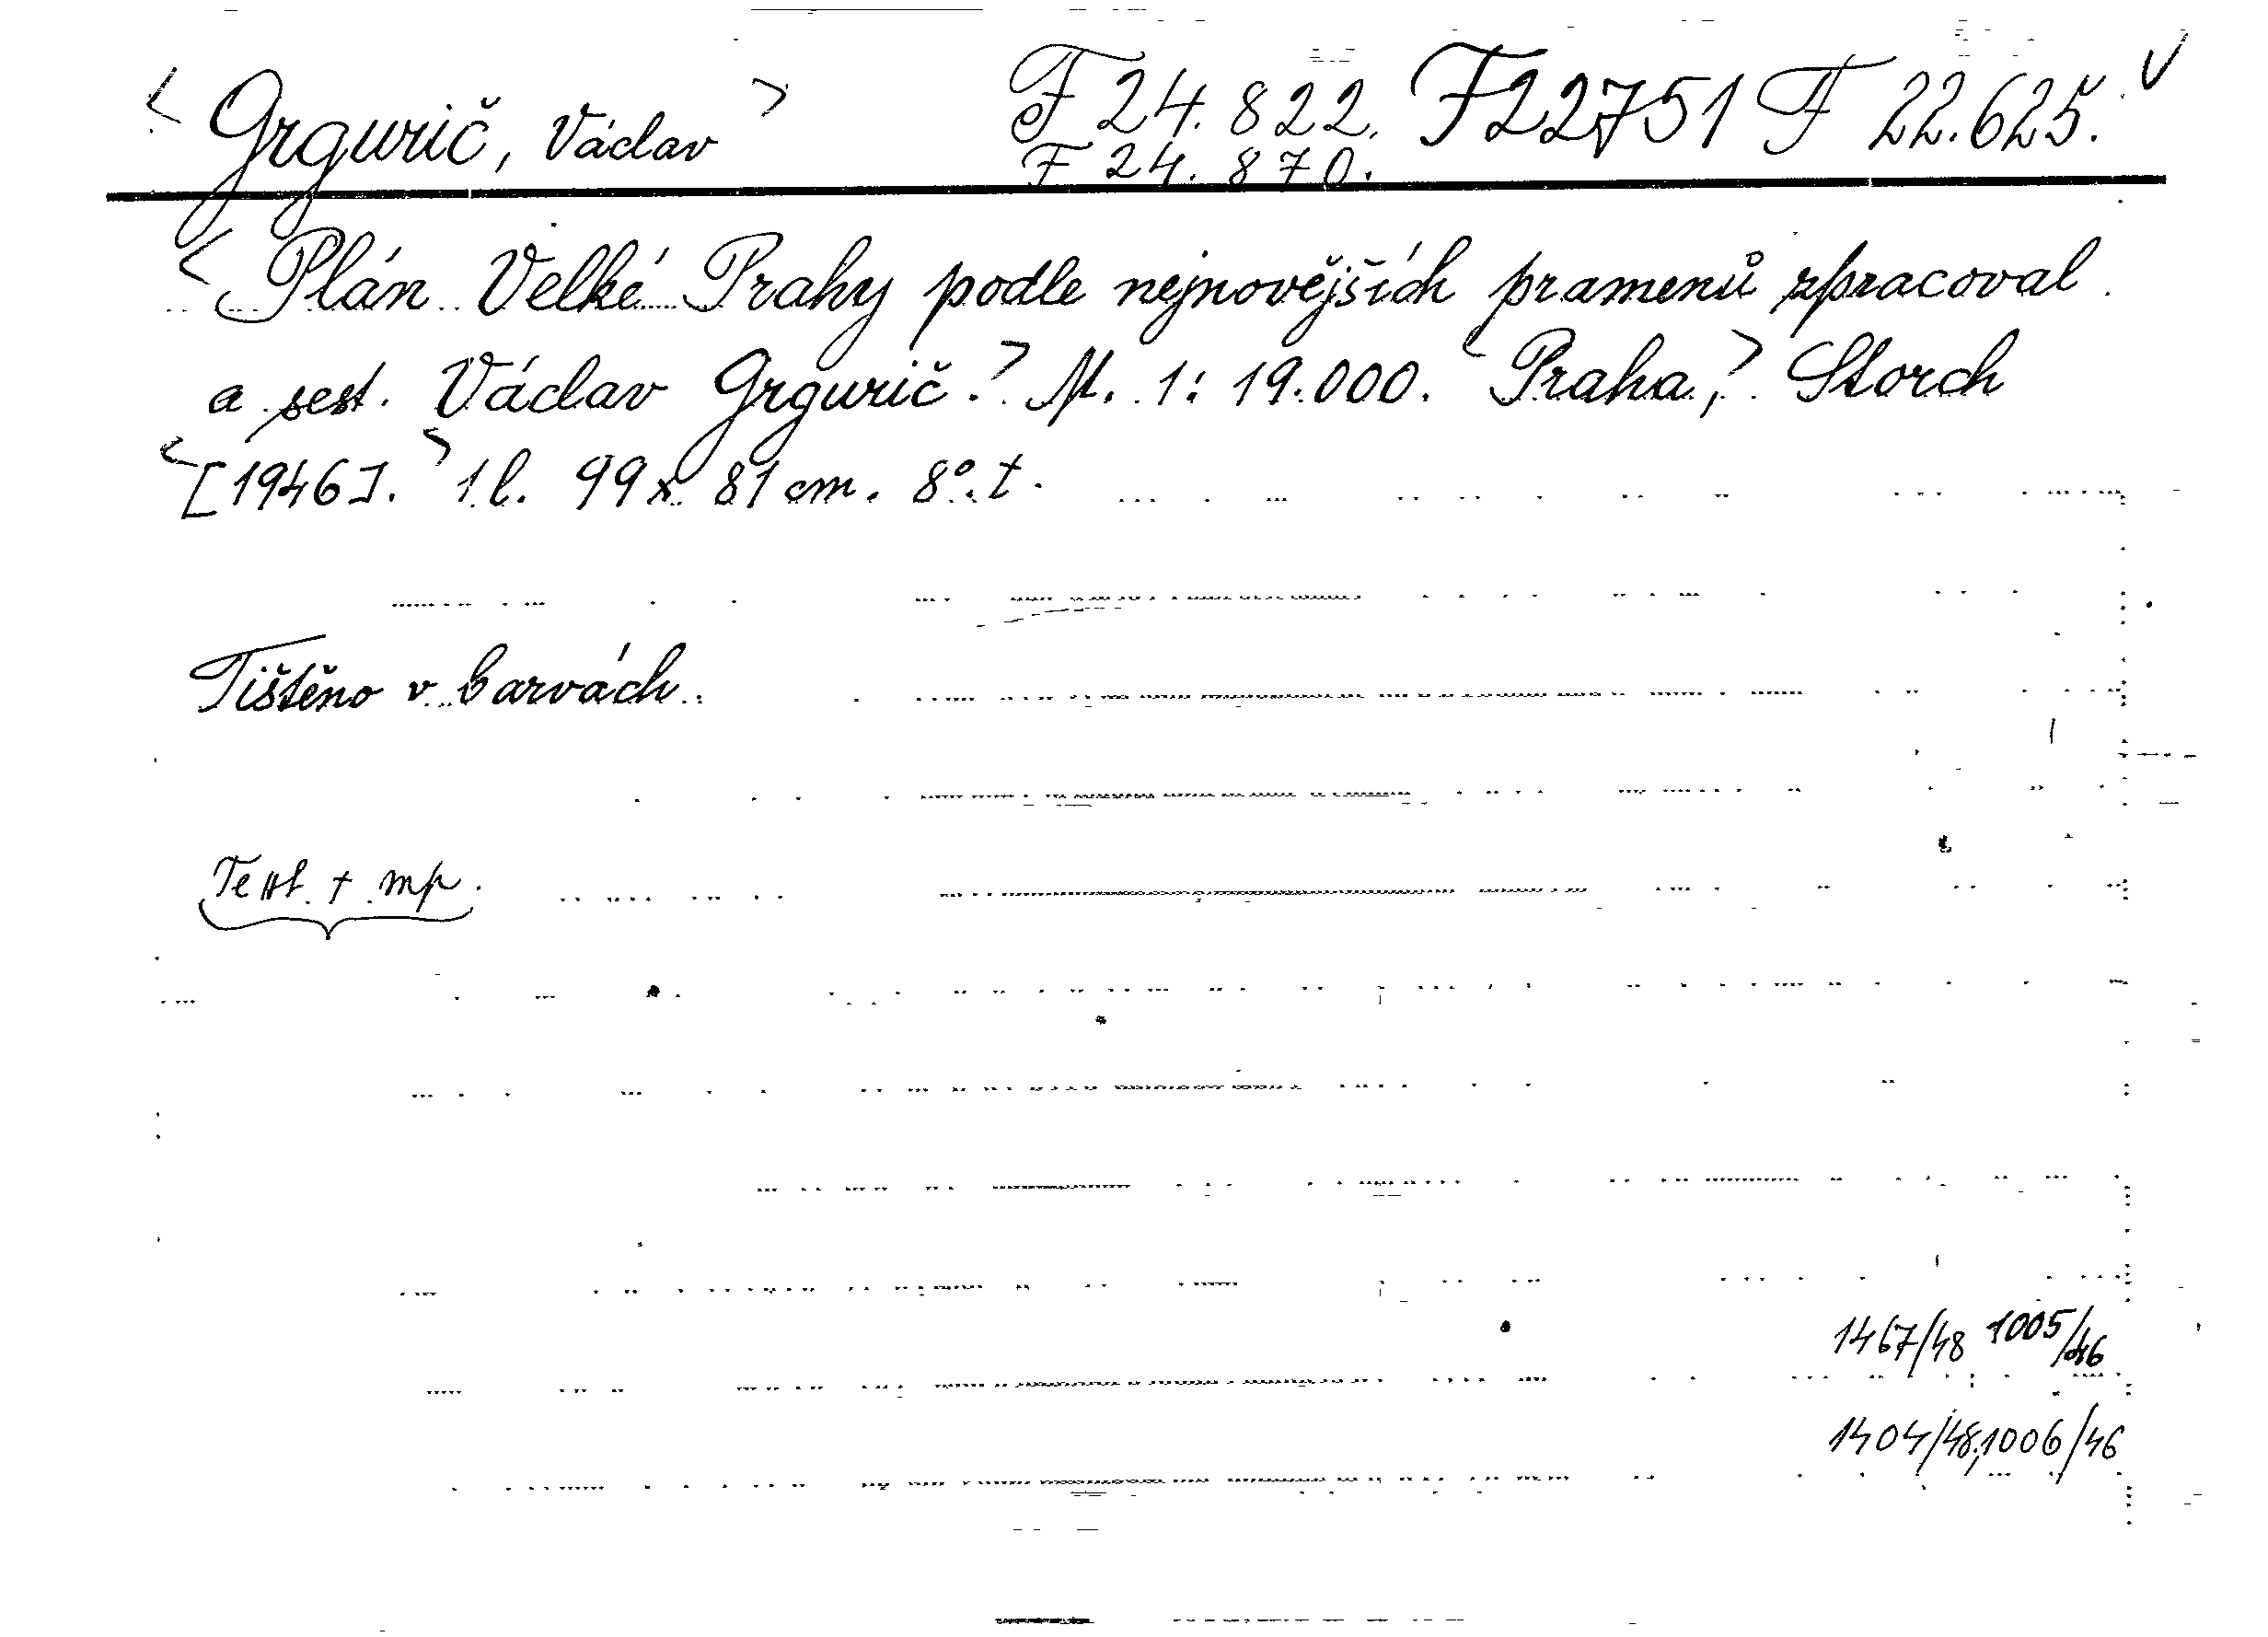 <Grgurič, Václav> F 24.822. F22751 F 22.625. V
F 24.870.
<Plán Velké Prahy podle nejnovějších pramenů zpracoval
a sest. Václav Grgurič.> M. 1:19.000. <Praha,> Storch
<[1946].> 1 l. 99x81 cm. 8°. t.
Tištěno v barvách.
Text + mp.
1467/48 1005/46
1404/48, 1006/46